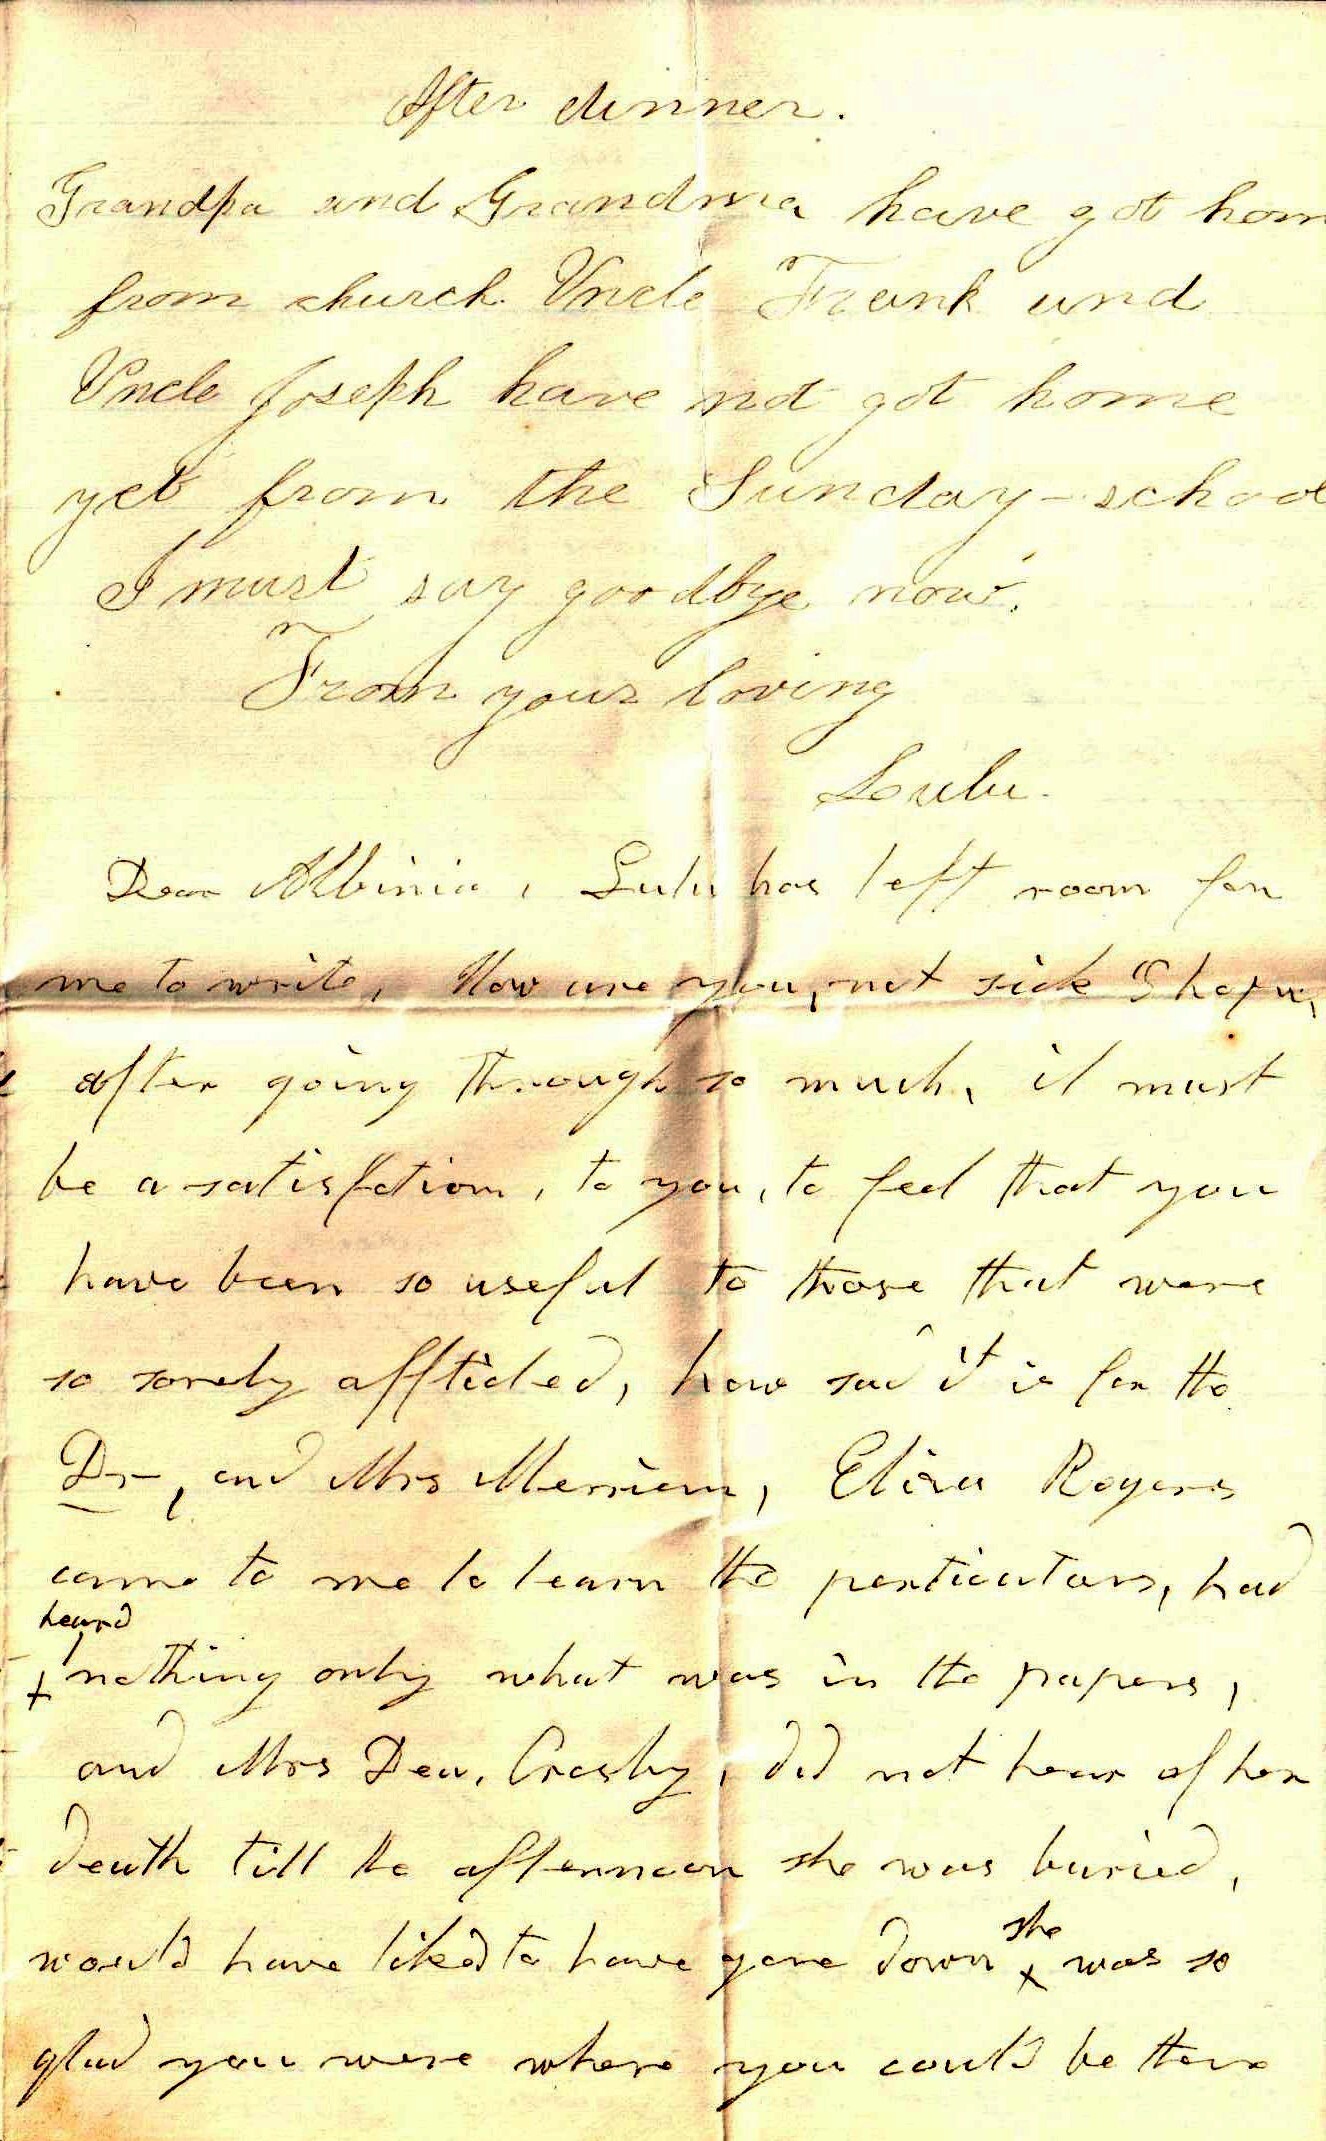 After dinner.
Grandpa and Grandma have got hom
from church. Uncle Frank and
Uncle Joseph have not got home
yet from the Sunday-school
I must say goodbye now.
From your loving
Lulu.
Dear Albinia, Lulu has left room for
me to write, How are you, not sick I hope,
after going through so much, it must
be a satisfation, to you, to feel that you
have been so useful to those that were
so sorely afflicted, how sad it is for the
Dr, and Mrs Merriam, Eliza Rogers
came to me to learn the particulars, had
heard
x nothing only what was in the papers,
and Mrs Dea, Crosby, did not hear of her
death till the afternoon she was buried,
would have liked to have gone down she x was so
glad you were where you could be there